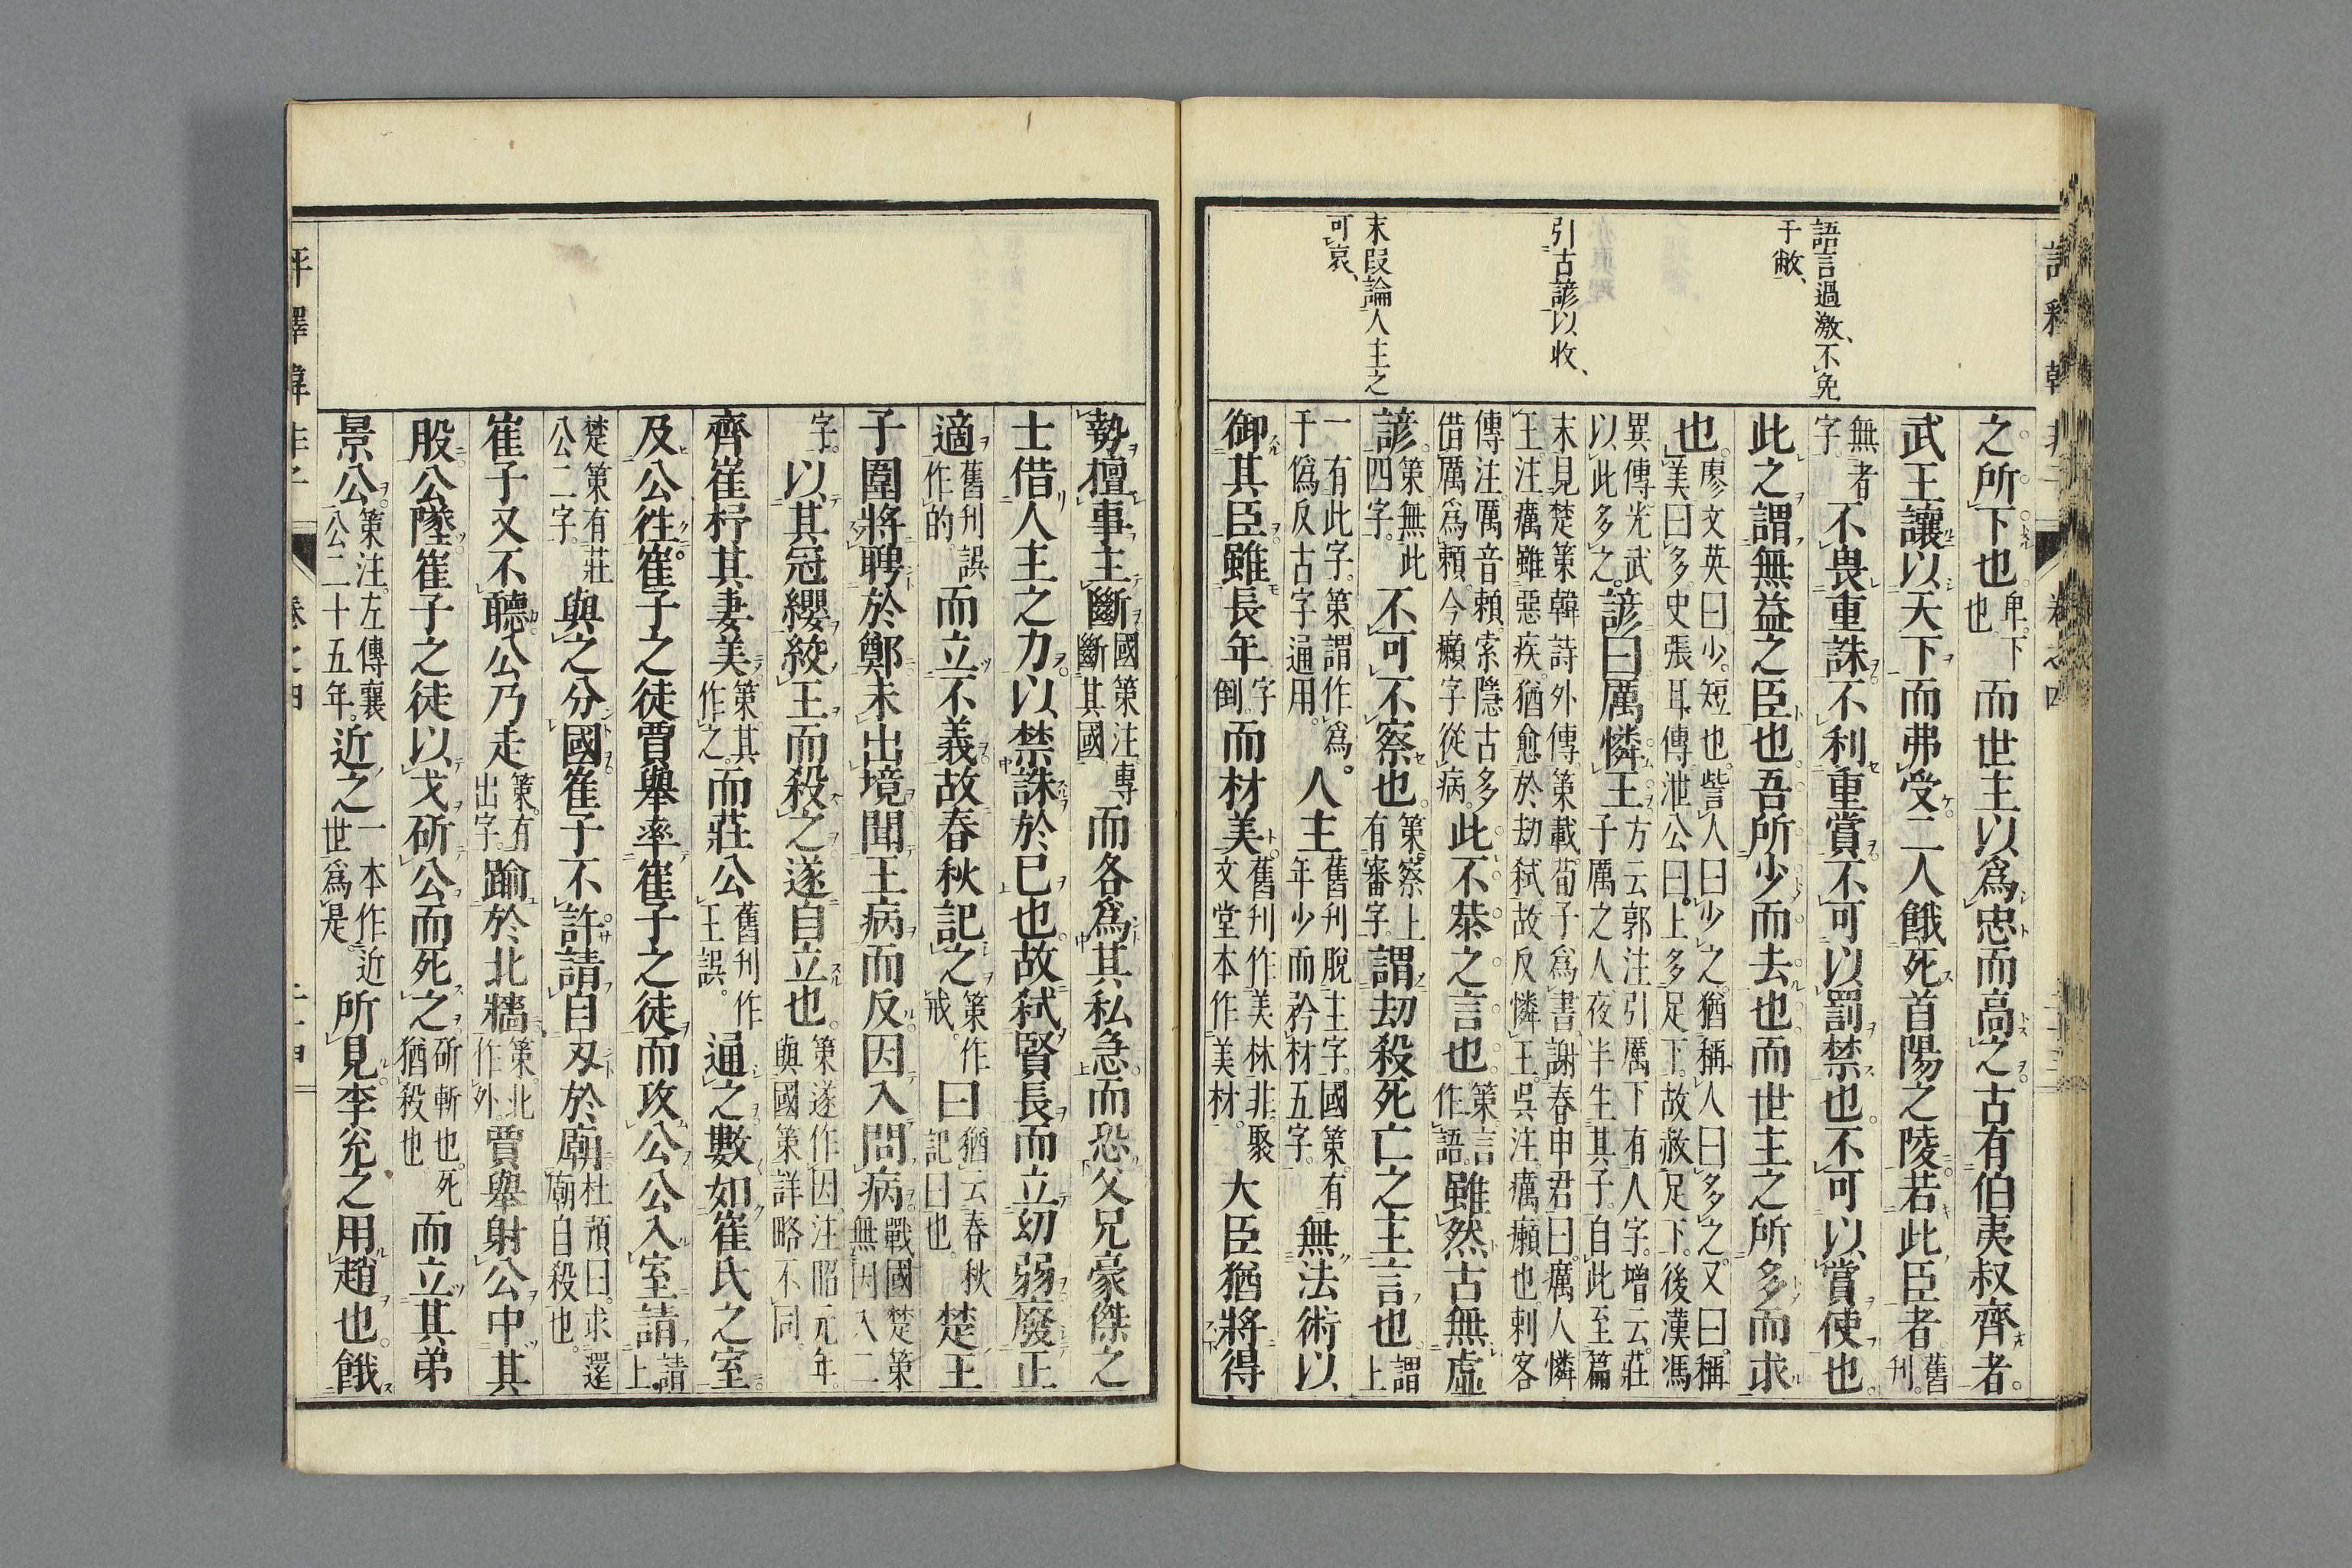 語言過激、不免
于敝、
引古諺以收、
末段論人主之
可哀、
之所下也。卑下也而世主以爲忠而高之。古有伯夷叔齊者。
武王讓以天下而弗受。二人餓死首陽之陵。若此臣者。舊刊。
無者字。不畏重誅。不利重賞。不可以罰禁也。不可以賞使也。
此之謂無益之臣也。吾所少而去也。而世主之所多而求
也。廖文英曰少。短也。訾人曰少之。猶稱人曰多之。又曰。稱美曰多。史張耳傳。泄公曰。上多足下。故赦足下。後漢馮
異傳。光武以此多之。諺曰。厲憐王。方云郭注引厲下有人字。增云。莊子厲之人夜半生其子。自此至篇
末見楚策韓詩外傳。策載荀子爲書謝春申君曰。癘人憐王。注癘雖惡疾。猶愈於劫弑。故反憐王。吳注。癘癩也。刺客
傳注。厲音賴。索隱古多借厲爲賴。今癩字從病。此不恭之言也。策言作語。雖然。古無虛
諺。策無此四字。不可不察也。策察上有審字。謂劫殺死亡之主言也。謂上
一有此字。策謂作爲。于僞反古字通用。人主舊刊脫主字。國策有年少而矜材五字。無法術以
御其臣。雖長年字倒。而材美。舊刊作美林非。聚文堂本作美材。大臣猶將得
勢擅事主斷國策注。專斷其國而各爲其私急。而恐父兄豪傑之
士借人主之力。以禁誅於己也。故弑賢長而立幼弱。廢正
適舊刊誤作的。而立不義。故春秋記之策作戒。曰猶云春秋記曰也。楚王
子圍將聘於鄭。未出境。聞王病而反。因入問病。戰國楚策無因入二
字。以其冠纓絞王而殺之。遂自立也。策遂作因。注昭元年。與國策詳略不同。
齊崔杼其妻美。策其作之。而莊公舊刊作王誤。通之。數如崔氏之室。
及公往。崔子之徒賈舉率崔子之徒而攻公。公入室。請請上。
楚策有莊公二字。與之分國。崔子不許。請自刃於廟。杜預曰。求還廟自殺也。
崔子又不聽。公乃走策。有出字。踰於北牆。策。北作外。賈舉射公。中其
股。公墜。崔子之徒以戈斫公而死之。斫斬也。死猶殺也而立其弟
景公。策注。左傳襄公二十五年。近之一本作近世爲是。所見。李兌之用趙也。餓